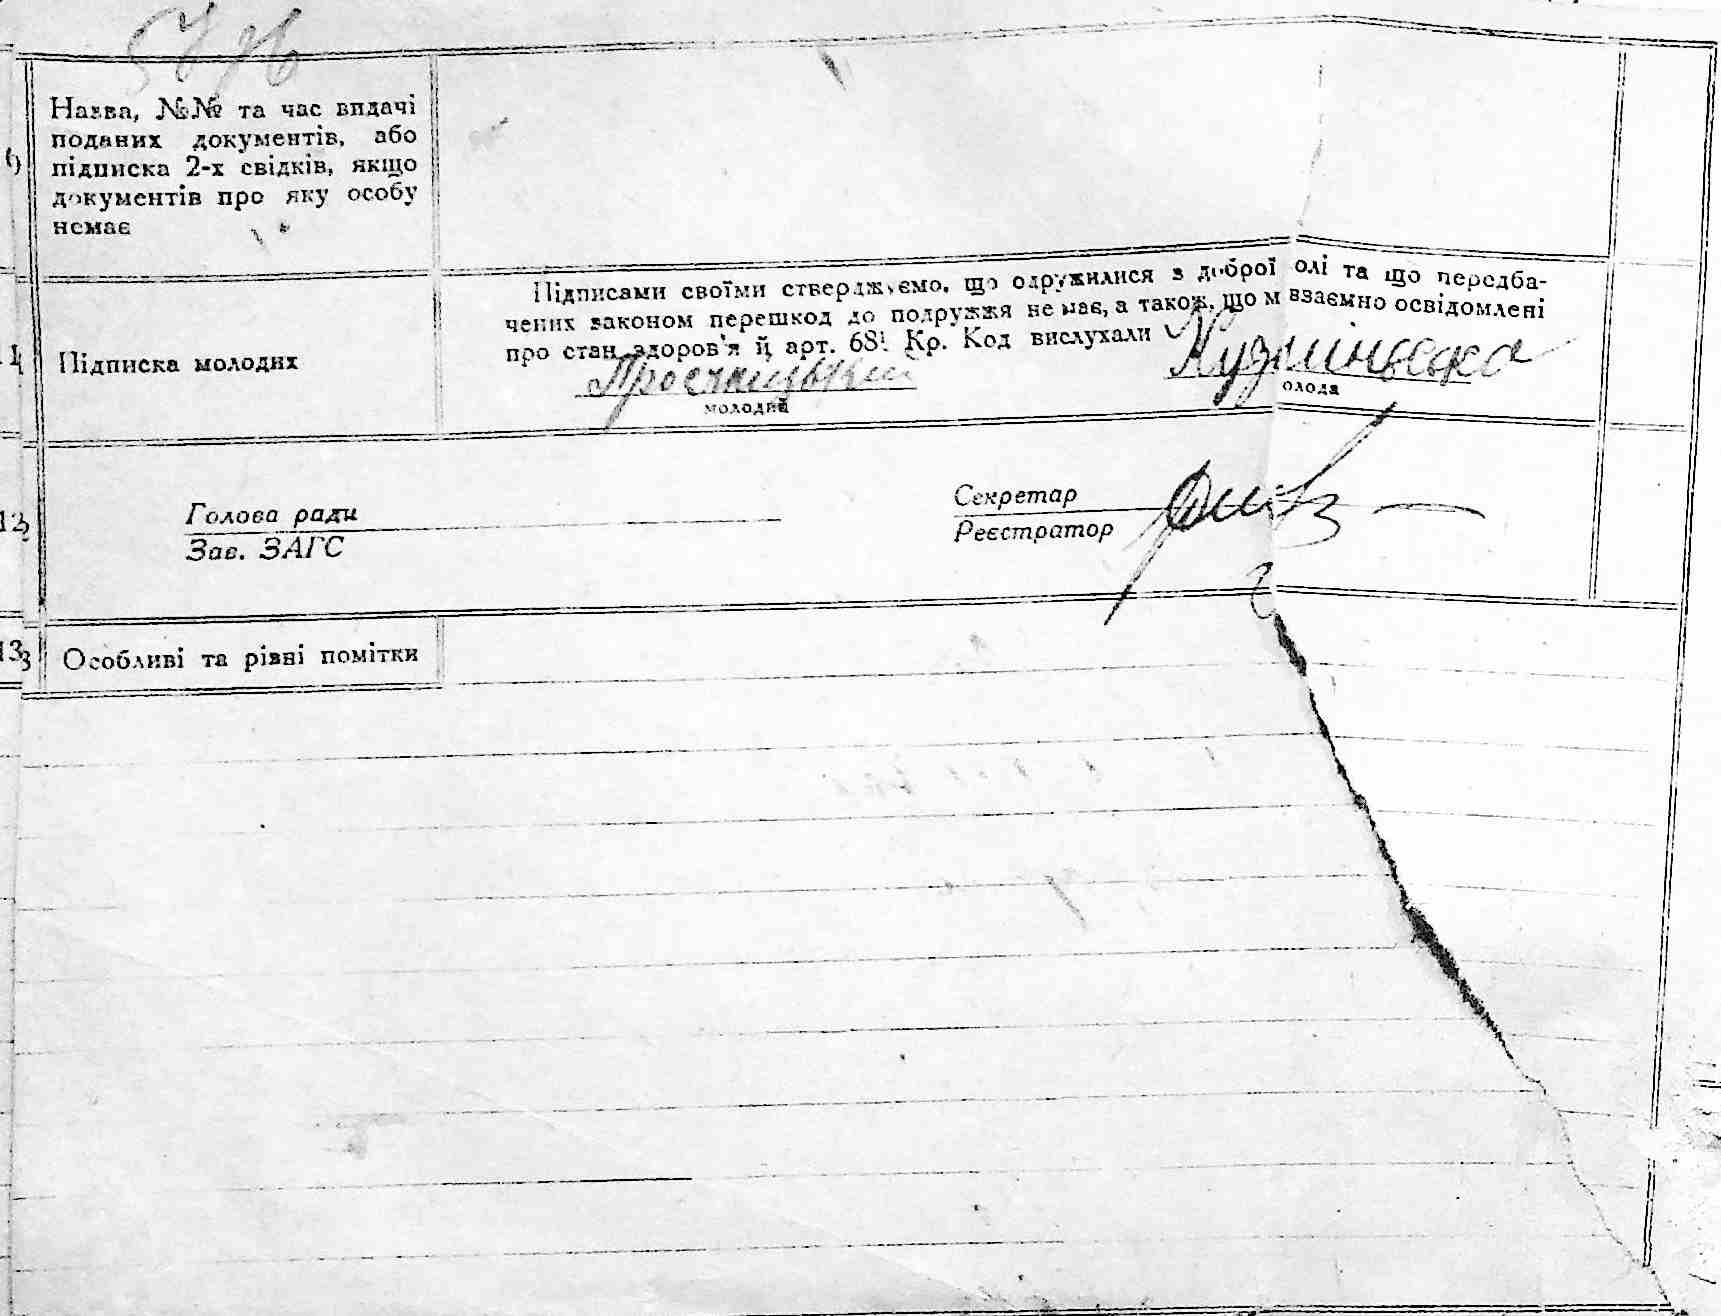 Назва, №№ та час видачі
поданих документів, або
підписка 2-х свідків, якщо
документів про яку особу
немає
Підписами своїми стверджуємо, що одружилися з доброї олі та що передба-
чених законом перешкод до подружжя немає, а також, що м взаємно освідомлені
про стан здоров'я й арт. 68¹ Кр. Код вислухали
11
Підписка молодих
Кузмінська
молодий
олода
12
Голова ради
Зав. ЗАГС
Секретар
Реєстратор
13
Особливі та різні помітки